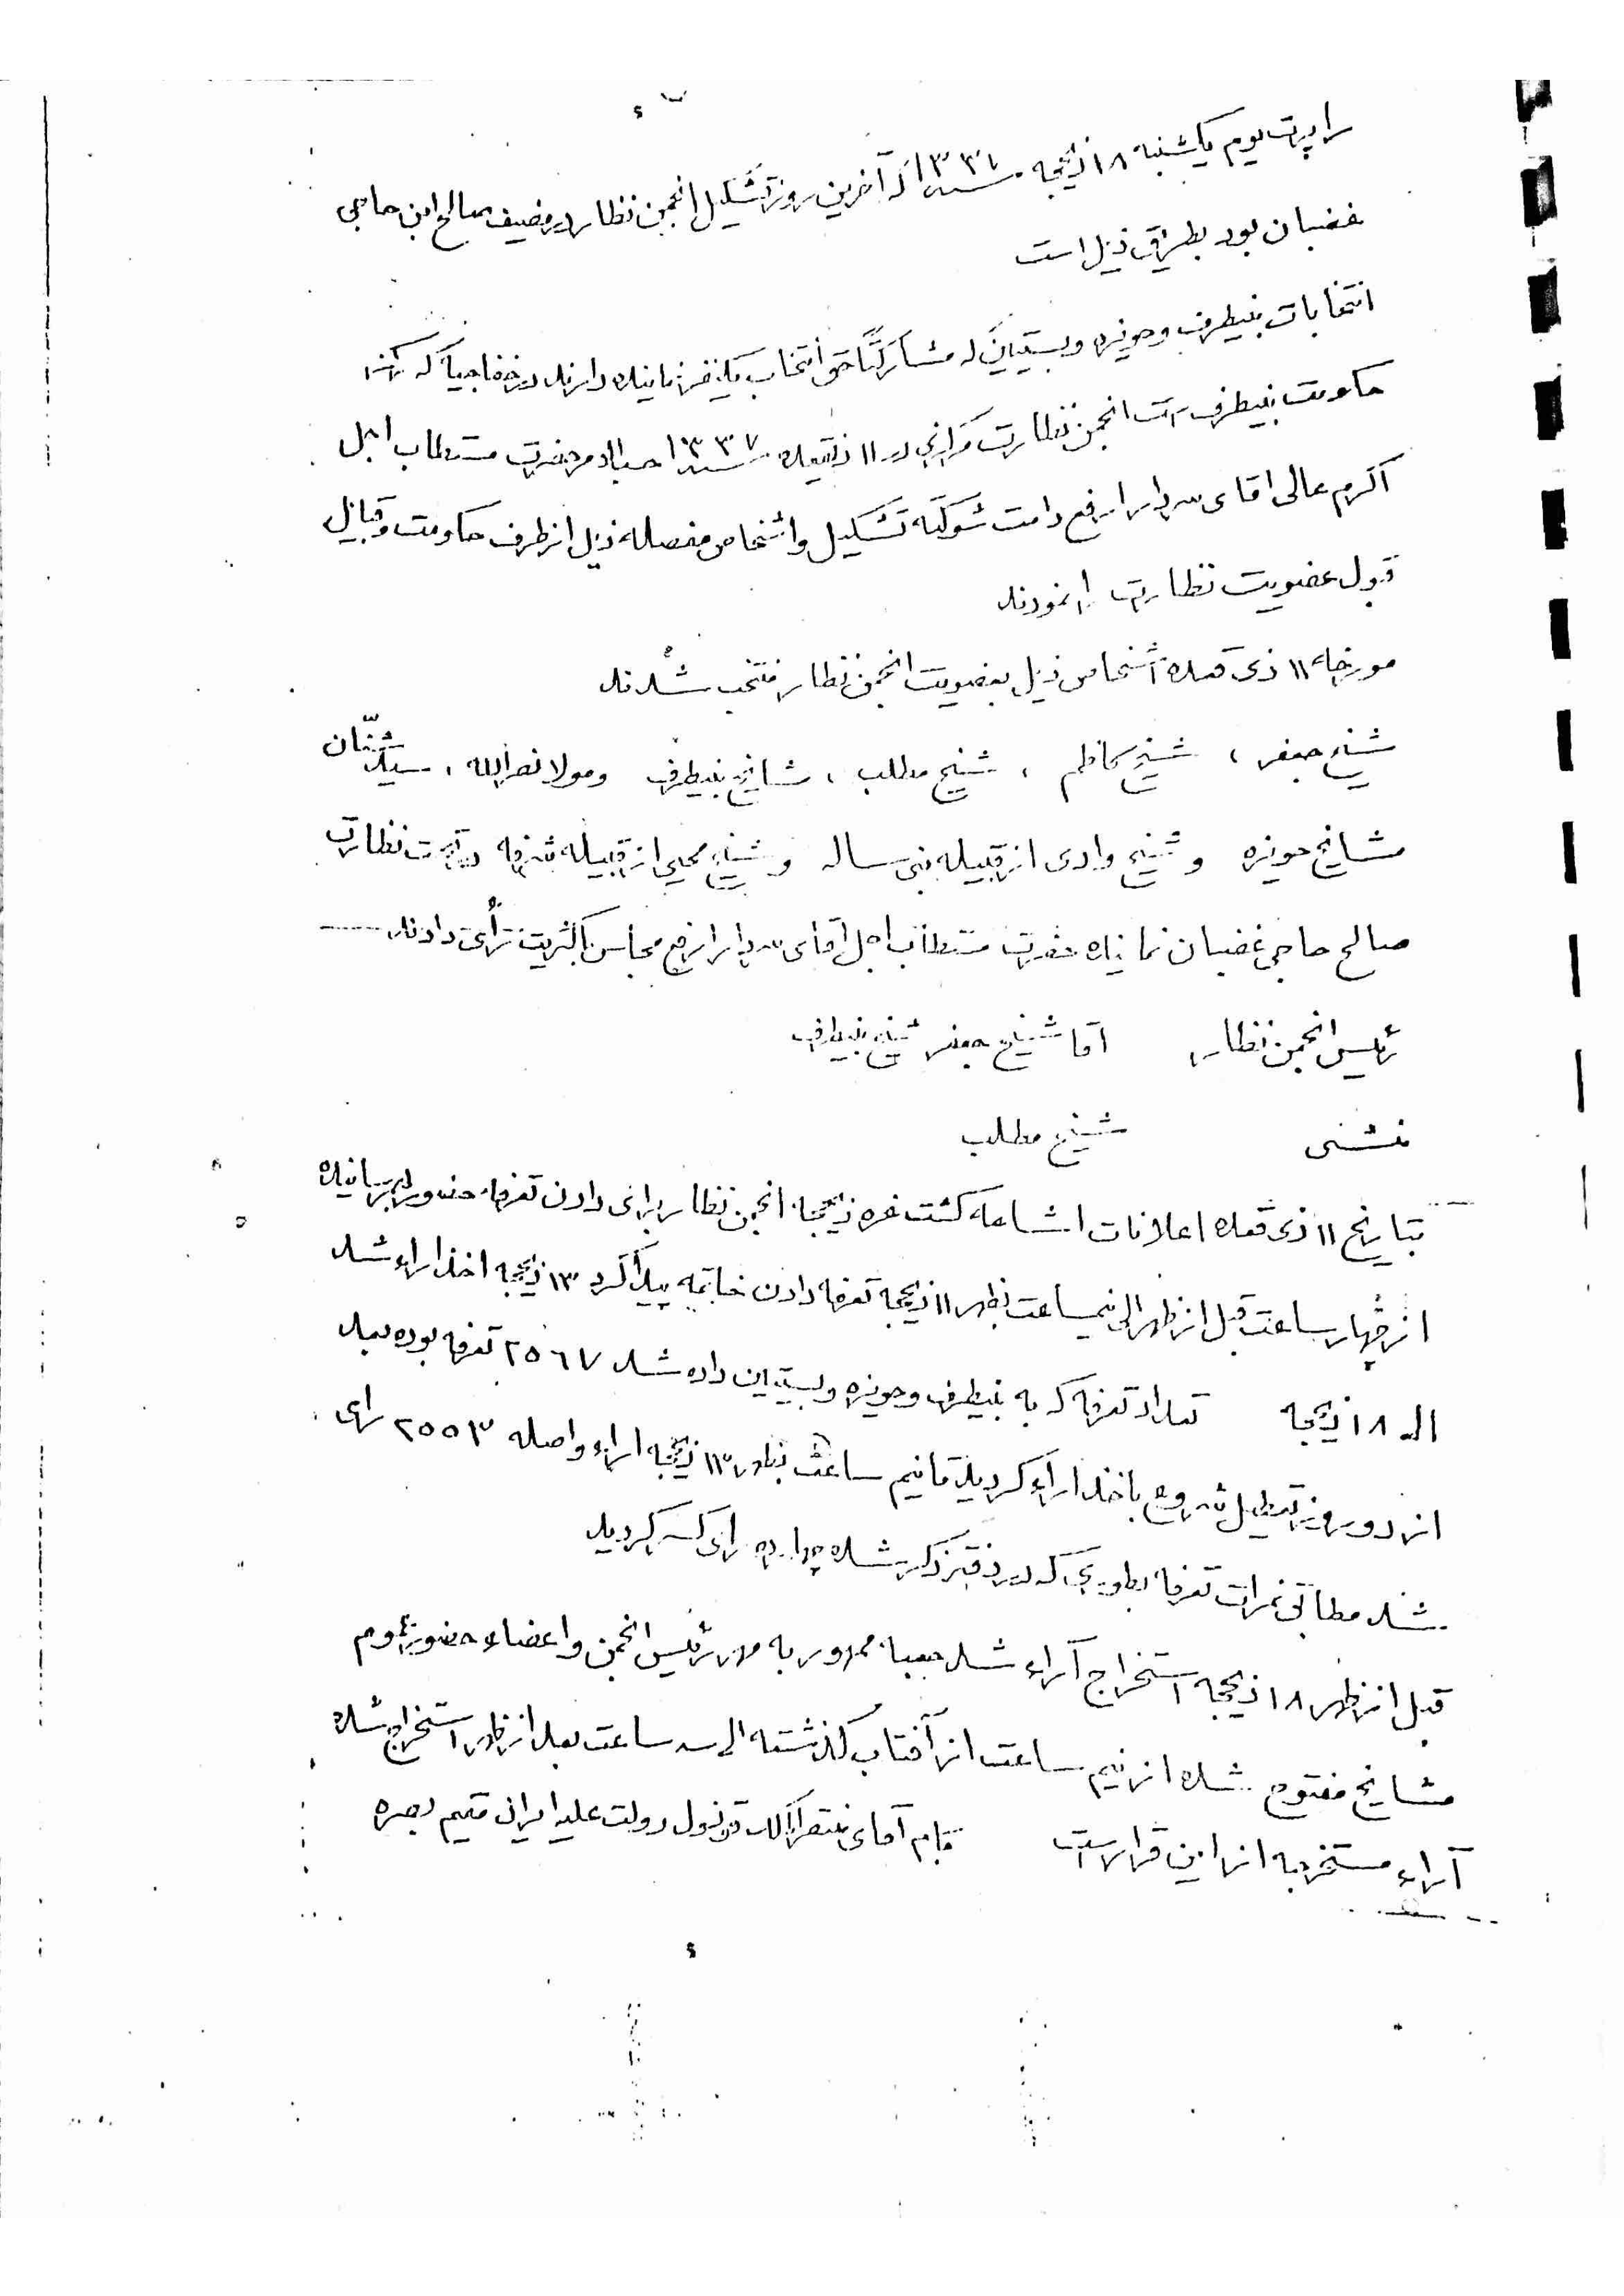 راپرت یوم یکشنبه ۱۸ ذیحجه سنه ۱۳۳۷ که آخرین روز تشکیل انجمن نظار در مضیف صالح ابن حاجی
غضبان بود بطریق ذیل است
انتخابات بنیطرف و حویزه و بستین که مشارکتاً حق انتخاب یکنفر نماینده دارند در خفاجیه که
حکومت بنیطرف است انجمن نظارت مرکزی در ۱۱ ذیقعده سنه ۱۳۳۷ حضرت مستطاب اجل
اکرم عالی اقای سردار ارفع دامت شوکته تشکیل و اشخاص مفصله ذیل از طرف حکومت و قبایل
قبول عضویت نظارت را نمودند
مورخه ۱۱ ذی قعده اشخاص ذیل بعضویت انجمن نظار منتخب شدند
شیخ جعفر ، شیخ کاظم ، شیخ مطلب ، مشایخ بنیطرف و مولا نصرالله ، سید
مشایخ حویزه و شیخ وادی از قبیله بنی ساله و شیخ محیی از قبیله شرفه در تحت نظارت
صالح حاجی غضبان نماینده حضرت مستطاب اجل اقای سردار ارفع مجلس باکثریت رأی دادند
رئیس انجمن نظار آقا شیخ جعفر شیخ بنیطرف
منشی شیخ مطلب
بتاریخ ۱۱ ذی قعده اعلانات اشاعه گشت غره ذیحجه انجمن نظار برای دادن تعرفه حضور بهمرسانیده
از چهار ساعت قبل از ظهر الی نیمساعت بظهر ۱۱ ذیحجه تعرفه دادن خاتمه پیدا کرد ۱۳ ذیحجه اخذ اراء شد
الی ۱۸ ذیحجه تعداد تعرفه که به بنیطرف و حویزه و بستین داده شد ۲۵۶۷ تعرفه بوده بعد
از دو روز تعطیل شروع باخذ اراء گردید تا نیم ساعت بظهر ۱۳ ذیحجه اراء واصله ۲۵۵۳ رای
شد مطابق نمرات تعرفه بطوری که در دفتر ذکر شده چهارده رای کسر گردید
قبل از ظهر ۱۸ ذیحجه استخراج آراء شد جعبه ممهور به مهر رئیس انجمن و اعضاء حضور عموم
مشایخ مفتوح شده از نیم ساعت از آفتاب گذشته الی سه ساعت بعد از ظهر استخراج شده
آراء مستخرجه از این قرار است بنام آقای قونسول دولت علیه ایران مقیم بصره